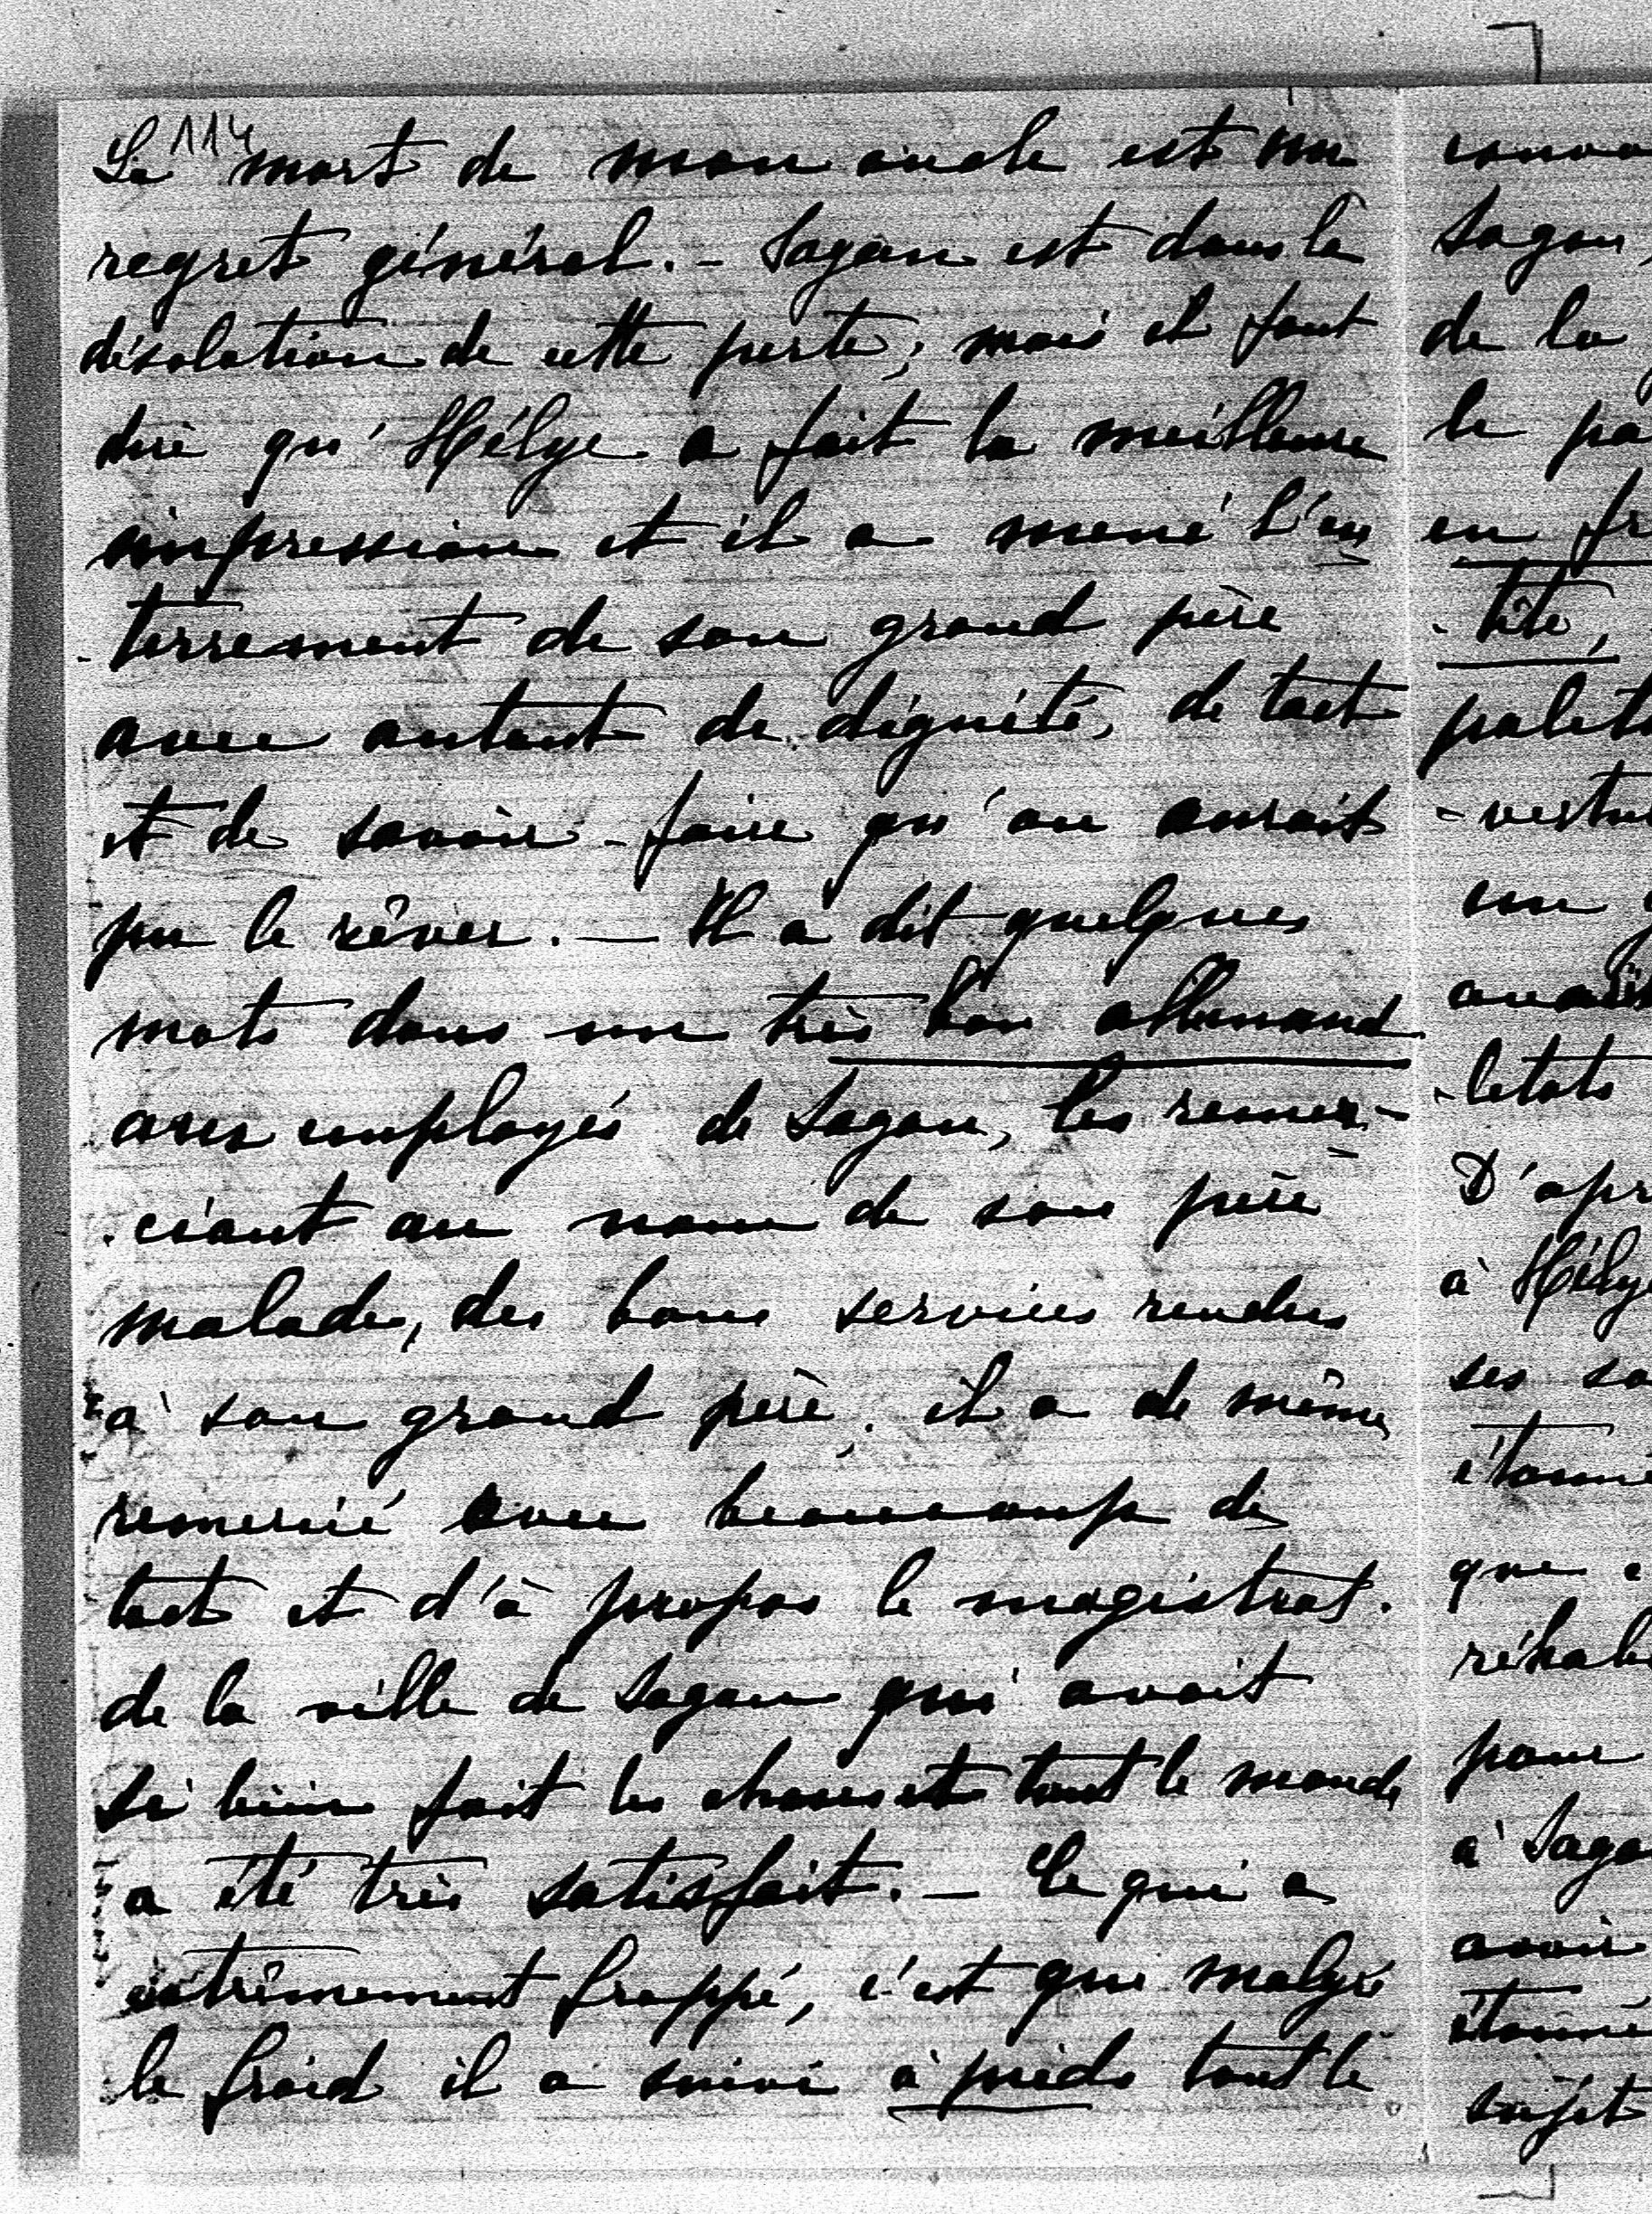 114
La mort de mon oncle est un
regret général. - Sagan est dans la
désolation de cette perte; mais il faut
dire qu'Hélye a fait la meilleure
impression et il a mené l'en
-terrement de son grand père
avec autant de dignité, de tact
et de savoir-faire qu'on aurait
pu le rêver. — Il a dit quelques
mots dans un très bon allemand
aux employés de Sagan, les remer-
-ciant au nom de son père
malade, des bons services rendus
à son grand père; il a de même
remercié avec beaucoup de
tact et d'à propos le magistrat.
de la ville de Sagan qui avait
si bien fait les choses et tout le monde
a été très satisfait. - Ce qui a
extrêmement frappé, c'est que malgré
le froid il a suivi à pieds tout le
Sagan,
de la
le pa
en fr
-tête,
palet
-vestu
un
-letots
D'apr
à Hély
ses sa
étonné
que
pour
à Saga
avoir
étonné
sujet